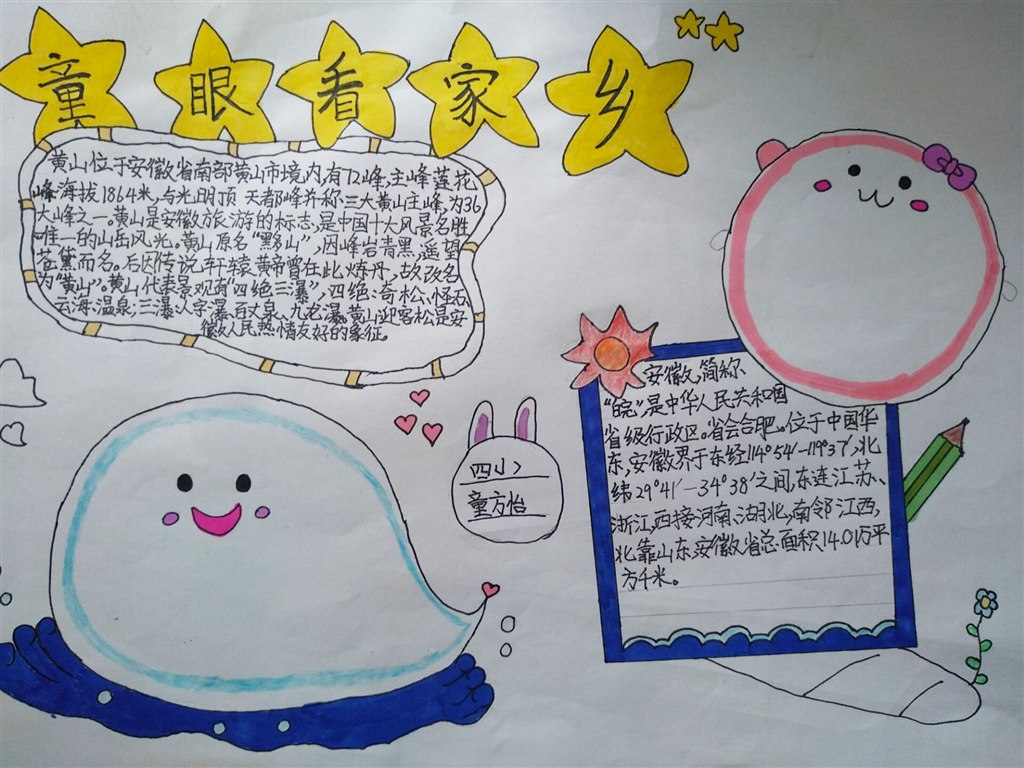 童眼看家乡
黄山位于安徽省南部黄山市境内,有72峰,主峰莲花
峰海拔1864米,与光明顶 天都峰并称三大黄山主峰,为36
大峰之一。黄山是安徽旅游的标志,是中国十大风景名胜
唯一的山岳风光。黄山原名“黟山”,因峰岩青黑,遥望
苍黛而名。后因传说轩辕黄帝曾在此炼丹,故改名
为“黄山”。黄山代表景观有“四绝三瀑”,四绝:奇松、怪石、
云海、温泉;三瀑:人字瀑、百丈泉、九龙瀑。黄山迎客松是安
徽人民热情友好的象征。
安徽,简称
“皖”,是中华人民共和国
省级行政区。省会合肥。位于中国华
东,安徽界于东经114°54′-119°37′,北
纬29°41′-34°38′之间,东连江苏、
浙江,西接河南、湖北,南邻江西,
北靠山东,安徽省总面积14.01万平
方千米。
四小
童方怡